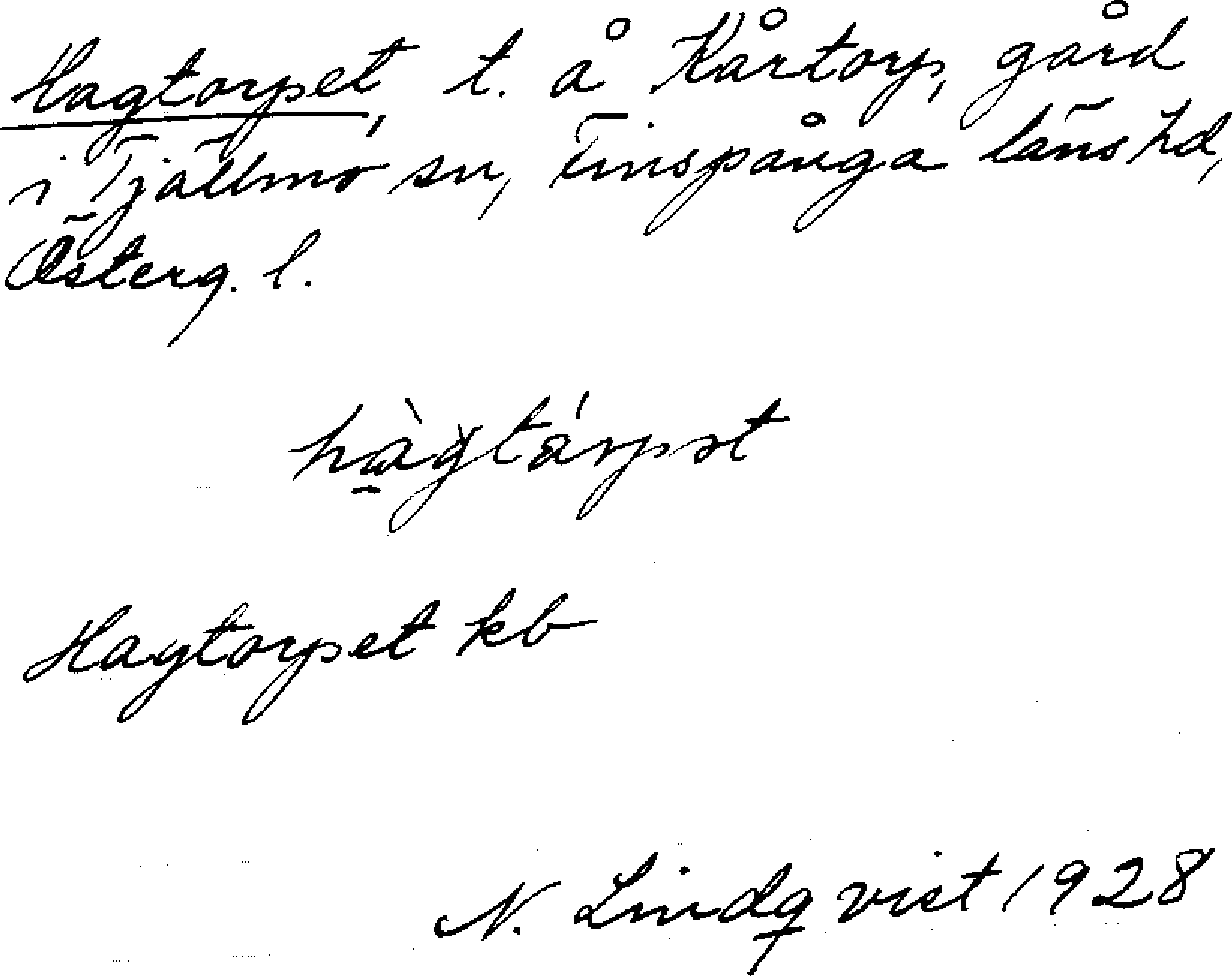 Hagtorpet, t. å Kårtorp, gård
i Tjällmo sn, Finspånga läns hd,
Österg. l.
hàgtárpət
Hagtorpet kb
N. Lindqvist 1928